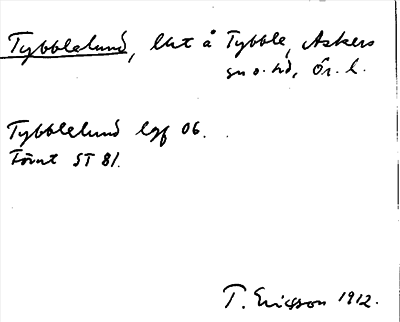 Tybblelund, lht å Tybble, Askers
sn o. hd, Ör. l.
Tybblelund lgf 06.
Förut ST 81.
T. Ericsson 1912.